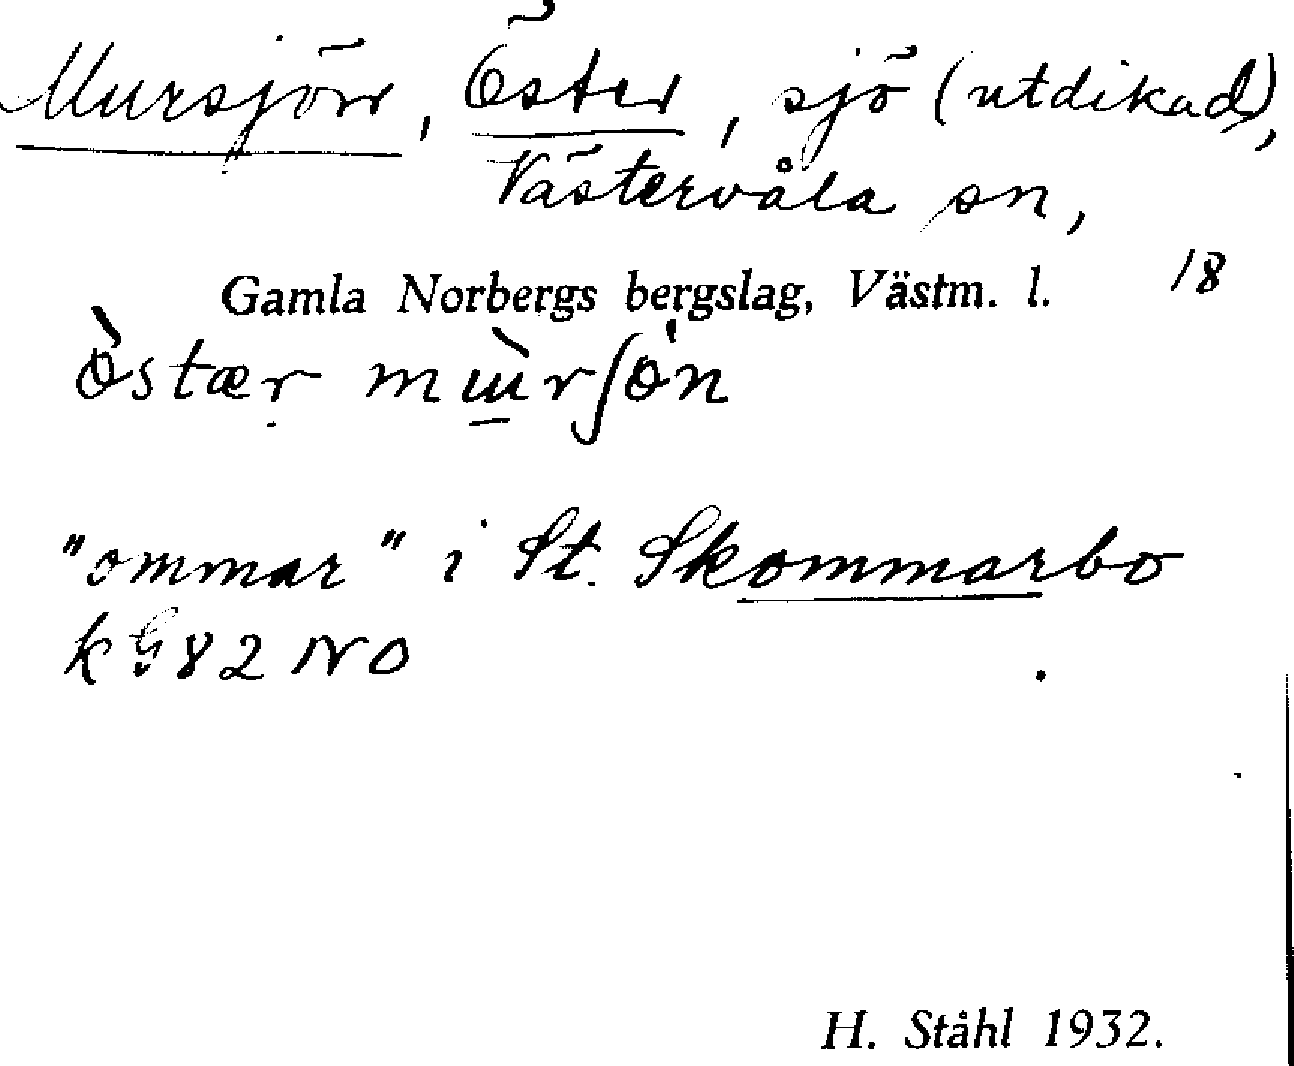 Mursjön, Öster, sjö (utdikad),
Västervåla sn,
Gamla Norbergs bergslag, Västm. l. 18
"ommar" i St. Skommarbo
k G82 NO
H. Ståhl 1932.